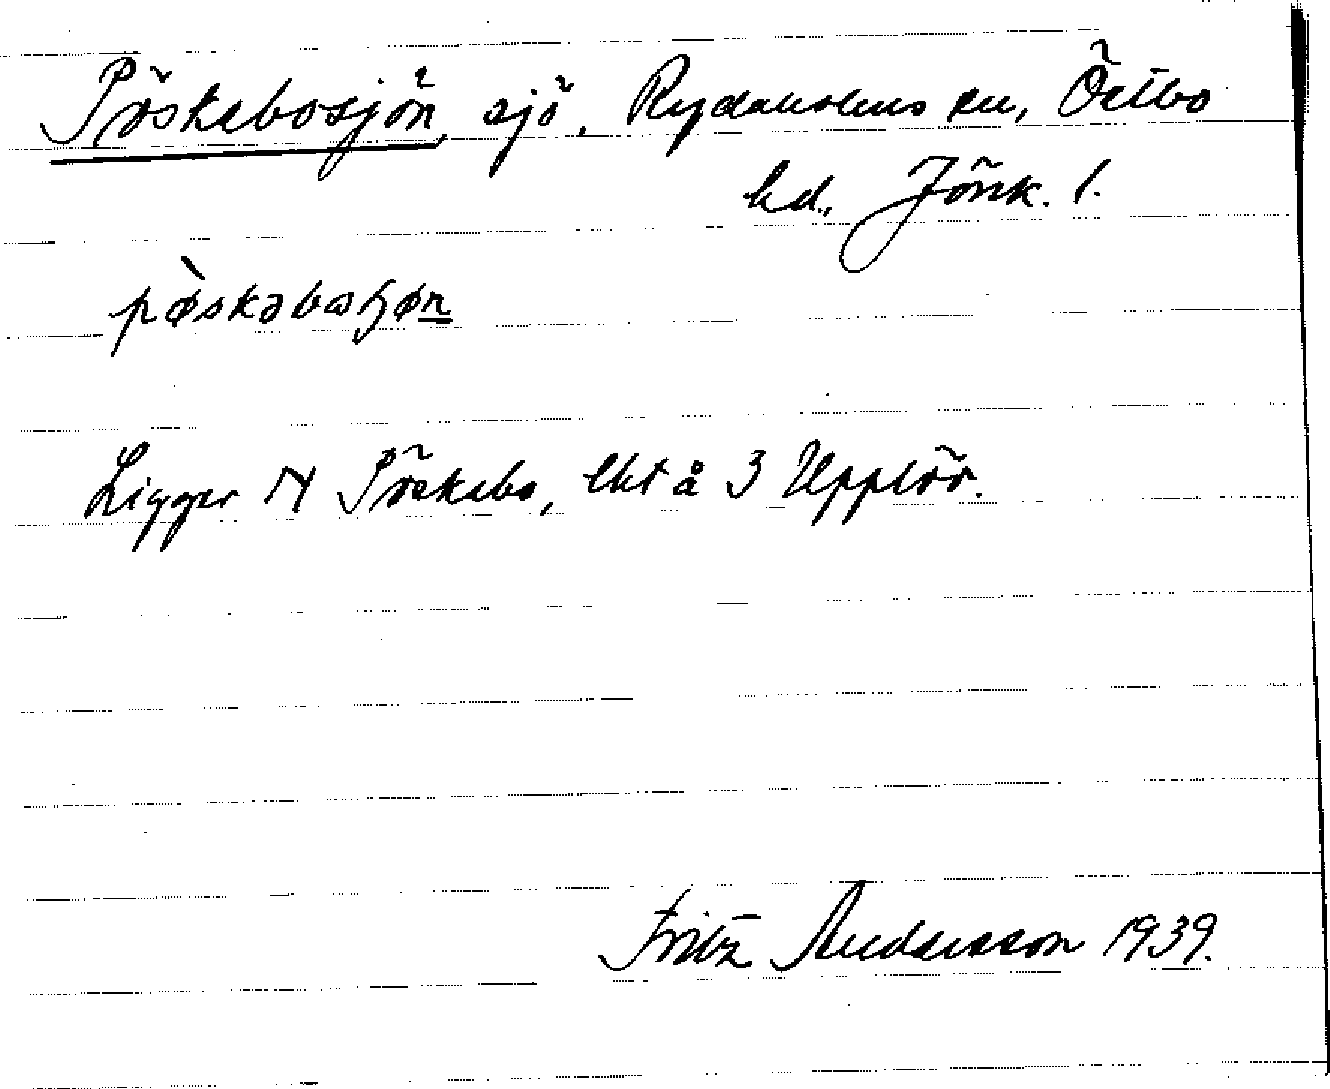 Pöskabosjön, sjö, Rydaholms sn, Östbo
hd., Jönk. l.
pøskabo
Ligger N Pöskabo, lht å 3 Upplöv.
Fritz Andersson 1939.